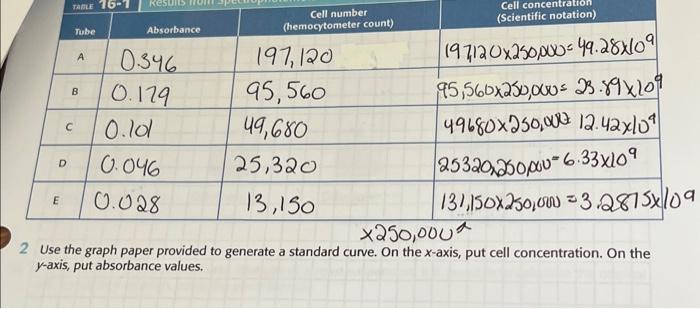 TABLE 16-1 Results from Spectrophotometer
Tube Absorbance Cell number (hemocytometer count) Cell concentration (Scientific notation)
A 0.346 197,120 197,120x250,000= 49.28x10⁹
B 0.179 95,560 95,560x250,000= 23.89x10⁹
C 0.101 49,680 49680x250,000= 12.42x10⁹
D 0.046 25,320 25320x250,000=6.33x10⁹
E 0.028 13,150 131,150x250,000=3.2875x10⁹
x250,000^
2 Use the graph paper provided to generate a standard curve. On the x-axis, put cell concentration. On the
y-axis, put absorbance values.